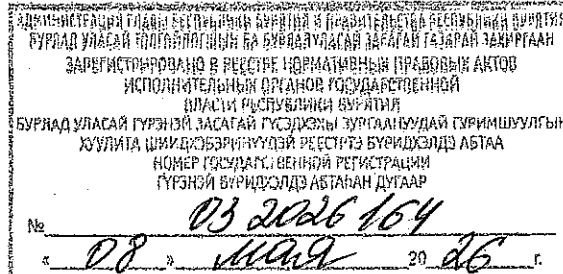 АДМИНИСТРАЦИЯ ГЛАВЫ РЕСПУБЛИКИ БУРЯТИЯ И ПРАВИТЕЛЬСТВА РЕСПУБЛИКИ БУРЯТИЯ
БУРЯАД УЛАСАЙ ТОЛГОЙЛОГШЫН БА БУРЯАД УЛАСАЙ ЗАСАГАЙ ГАЗАРАЙ ЗАХИРГААН
ЗАРЕГИСТРИРОВАНО В РЕЕСТРЕ НОРМАТИВНЫХ ПРАВОВЫХ АКТОВ
ИСПОЛНИТЕЛЬНЫХ ОРГАНОВ ГОСУДАРСТВЕННОЙ
ВЛАСТИ РЕСПУБЛИКИ БУРЯТИЯ
БУРЯАД УЛАСАЙ ГҮРЭНЭЙ ЗАСАГАЙ ГҮЙСЭДХЭХЫ ЗУРГААНУУДАЙ ГУРИМШУУЛҺАН
ХУУЛИТА ШИИДХЭБЭРИНҮҮДЭЙ РЕЕСТРТЭ БҮРИДХЭЛДЭ АБТАА
НОМЕР ГОСУДАРСТВЕННОЙ РЕГИСТРАЦИИ
ГҮРЭНЭЙ БҮРИДХЭЛДЭ АБТАҺАН ДУГААР
№ 03 2026 164
« 08 » мая 20 26 г.